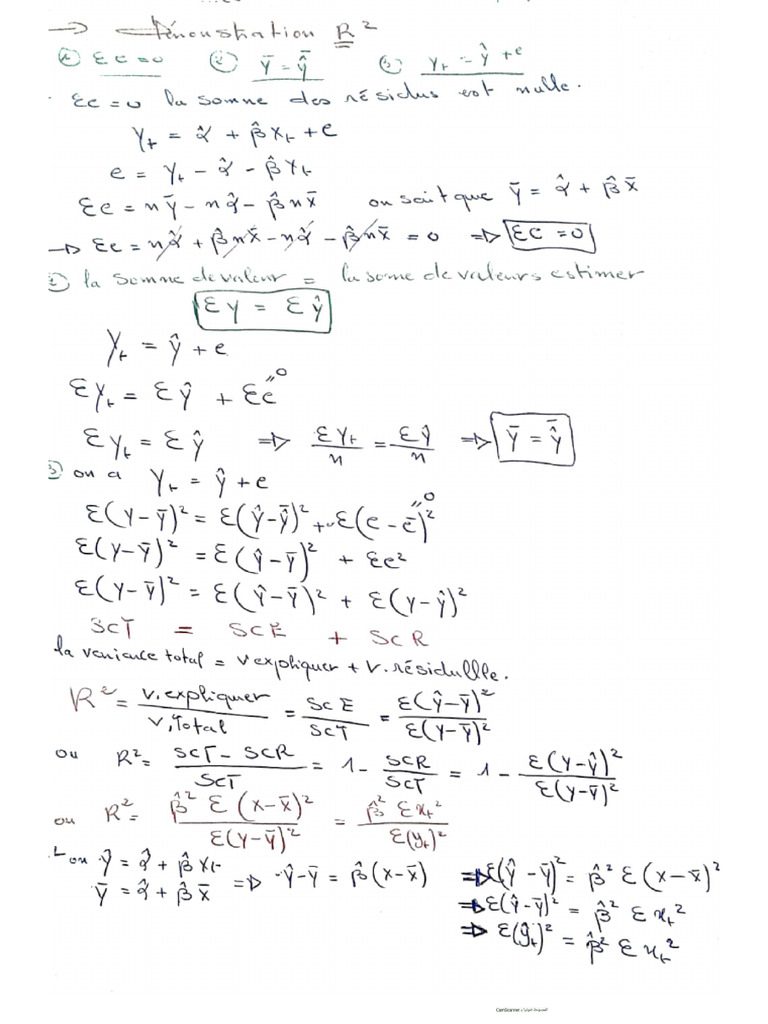 → Démonstration R²
① Ɛe=0 ② Ȳ = Ŷ̄ ③ Yt = Ŷ + e
Ɛe=0 la somme des résidus est nulle.
Yt = α̂ + β̂Xt + e
e = Yt - α̂ - β̂Xt
Ɛe = nȲ - nα̂ - β̂nX̄ on sait que Ȳ = α̂ + β̂X̄
→ Ɛe = nα̂ + β̂nX̄ - nα̂ - β̂nX̄ = 0 ⇒ Ɛe = 0
② la somme de valeur = la some de valeurs estimer
ƐY = ƐŶ
Yt = Ŷ + e
ƐYt = ƐŶ + Ɛe = 0
ƐYt = ƐŶ ⇒ ƐYt/n = ƐŶ/n ⇒ Ȳ = Ŷ̄
③ on a Yt = Ŷ + e
Ɛ(Y-Ȳ)² = Ɛ(Ŷ-Ŷ̄)² + Ɛ(e-ē)² = 0
Ɛ(Y-Ȳ)² = Ɛ(Ŷ-Ȳ)² + Ɛe²
Ɛ(Y-Ȳ)² = Ɛ(Ŷ-Ȳ)² + Ɛ(Y-Ŷ)²
ScT = ScE + ScR
la variance total = v expliquer + v. résidullle.
R² = v. expliquer / v. Total = ScE / ScT = Ɛ(Ŷ-Ȳ)² / Ɛ(Y-Ȳ)²
ou R² = ScT - ScR / ScT = 1 - ScR / ScT = 1 - Ɛ(Y-Ŷ)² / Ɛ(Y-Ȳ)²
ou R² = β̂² Ɛ(X-X̄)² / Ɛ(Y-Ȳ)² = β̂² Ɛxt² / Ɛ(yt)²
on Ŷ = α̂ + β̂Xt
Ȳ = α̂ + β̂X̄ ⇒ Ŷ-Ȳ = β̂(X-X̄) ⇒ Ɛ(Ŷ-Ȳ)² = β̂² Ɛ(X-X̄)²
⇒ Ɛ(Ŷ-Ȳ)² = β̂² Ɛxt²
⇒ Ɛ(ŷt)² = β̂² Ɛxt²
CamScanner